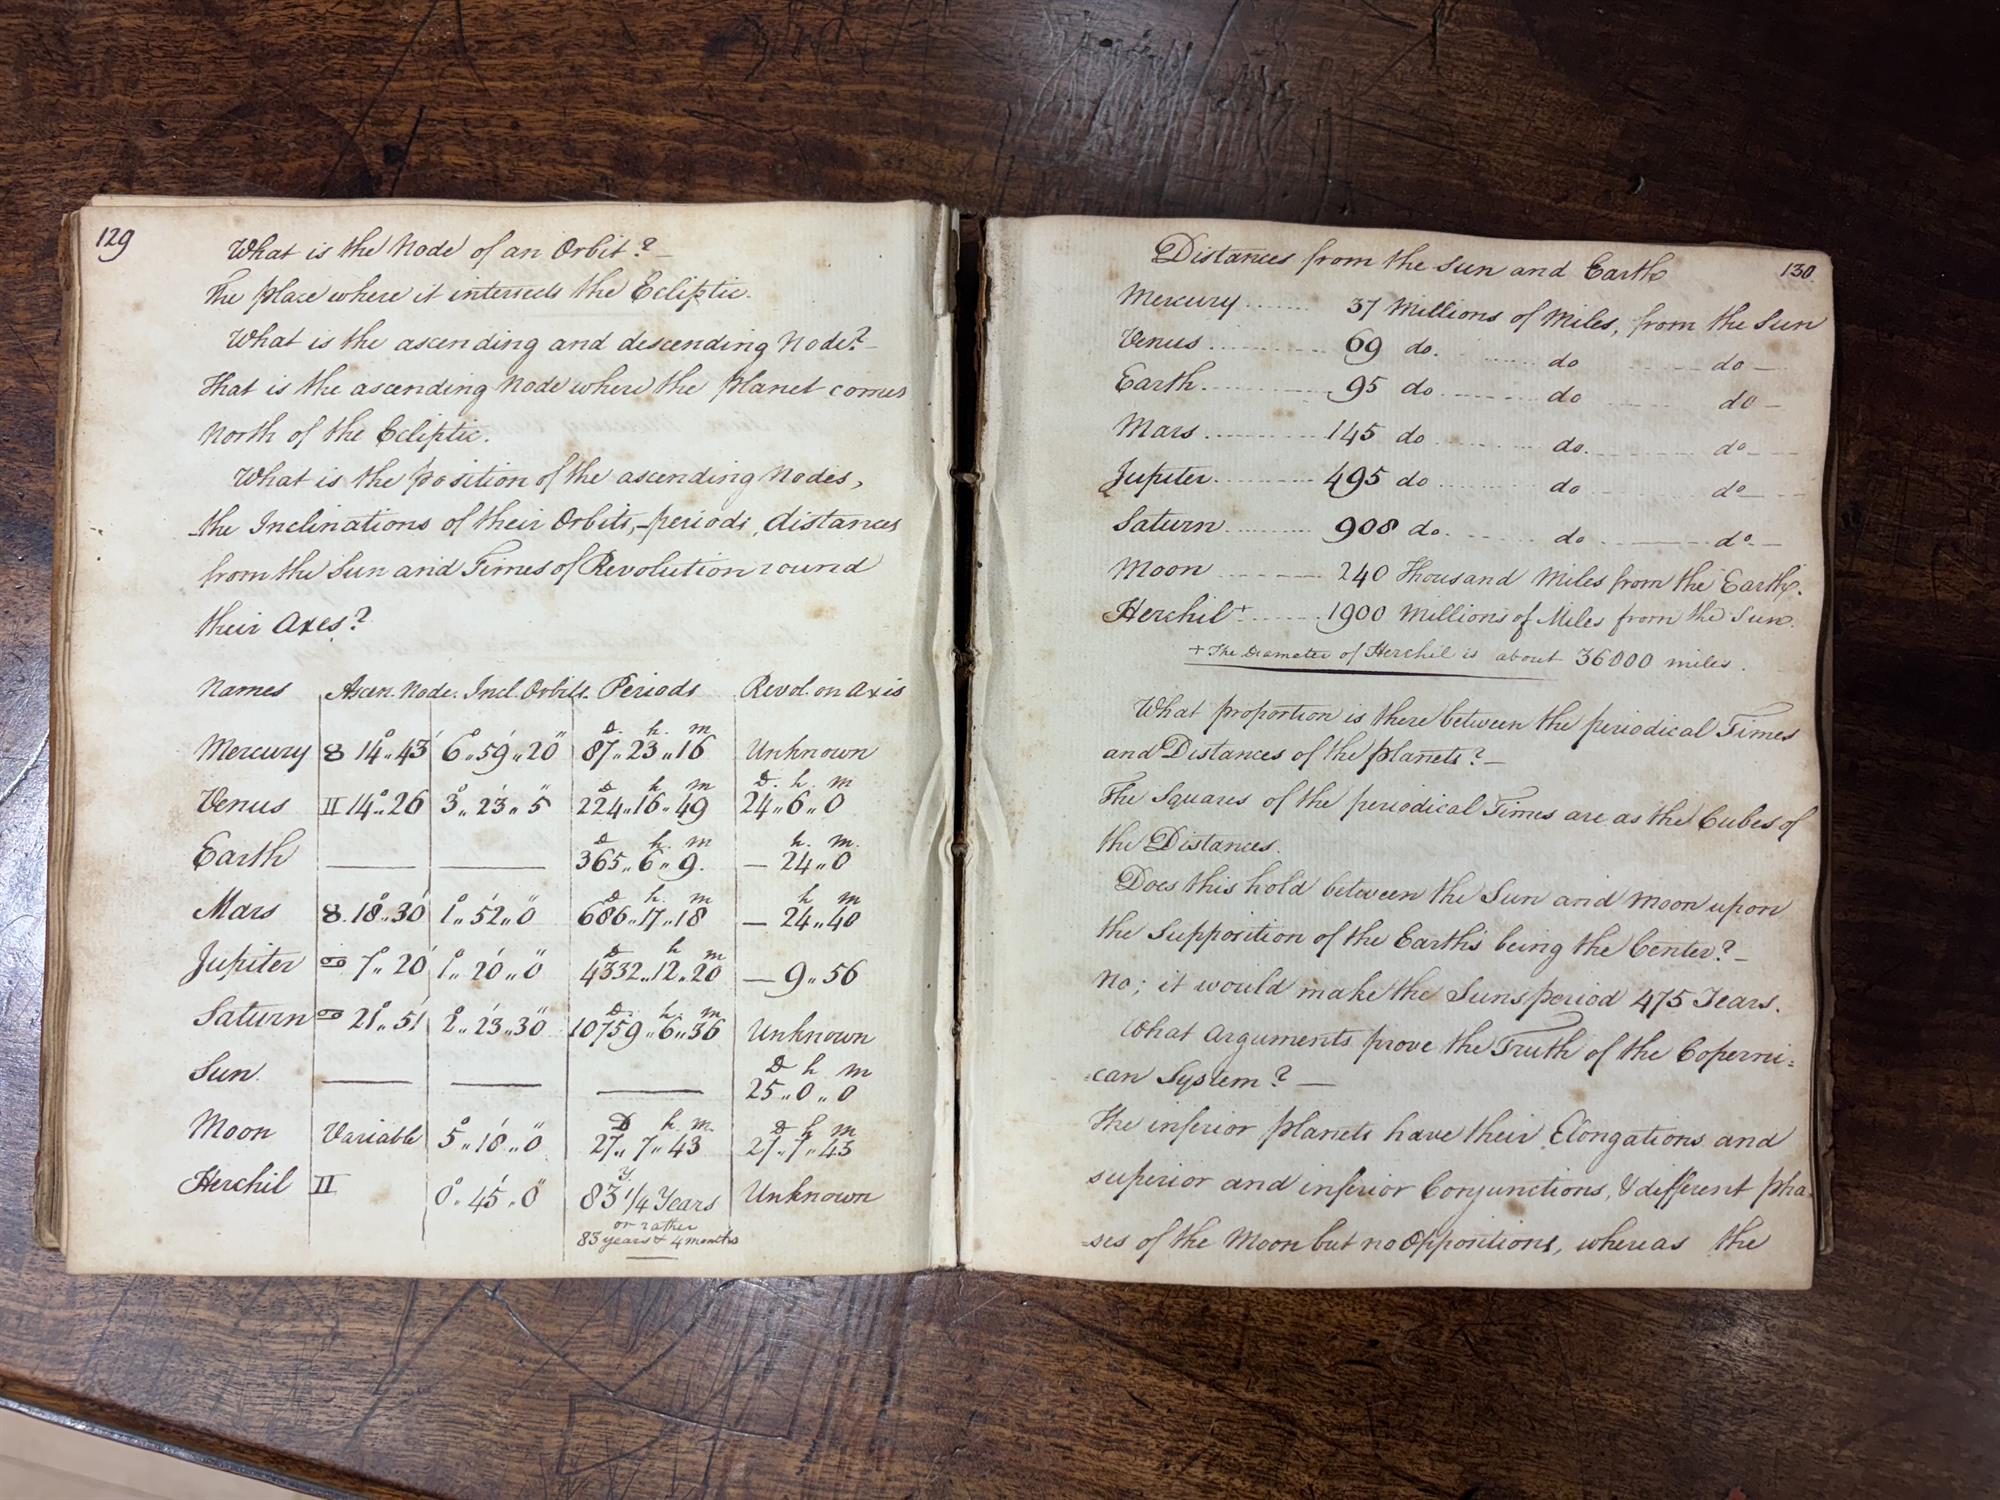 129
What is the Node of an Orbit? —
The place where it intersects the Ecliptic.
What is the ascending and descending Node? —
That is the ascending Node where the planet comes
North of the Ecliptic.
What is the position of the ascending Nodes,
the Inclinations of their Orbits, periods, distances
from the Sun and Times of Revolution round
their Axes?
Names Ascen. Node. Incl. Orbits. Periods Revol. on Axis
D. h. m
Mercury ♉ 14°„43' 6°„59'„20" 87„23„16 Unknown
D h m D. h. m
Venus II 14°„26 3°„23'„5" 224„16„49 24„6„0
D h. m h. m.
Earth — — 365„6„9. — 24„0
D h. m h m
Mars ♉ 18°„30' 1°„52'„0" 686„17„18 — 24„40
D h m
Jupiter ♋ 7°„20' 1°„20'„0" 4332„12„20 — 9„56
D. h. m
Saturn ♋ 21°„51' 2°„23'„30" 10759„6„36 Unknown
D h m
Sun. — — — 25„0„0
D h. m. D h m
Moon Variable 5°„18'„0" 27„7„43 27„7„43
Y
Herchil II 0°„45'„0" 83 1/4 Years Unknown
or rather
83 years & 4 months
130.
Distances from the Sun and Earth
Mercury ....... 37 Millions of Miles, from the Sun
Venus .......... 69 do. ....... do ....... do —
Earth .......... 95 do ....... do ....... do —
Mars .......... 145 do ....... do. ....... do —
Jupiter .......... 495 do ....... do ....... do —
Saturn .......... 908 do. ....... do ....... do —
Moon ....... 240 Thousand Miles from the Earth.
Herchil + ....... 1900 Millions of Miles from the Sun.
+ The Diameter of Herchil is about 36000 miles.
What proportion is there between the periodical Times
and Distances of the planets? —
The Squares of the periodical Times are as the Cubes of
the Distances.
Does this hold between the Sun and Moon upon
the Supposition of the Earth's being the Center? —
No; it would make the Suns period 475 Years.
What Arguments prove the Truth of the Coperni=
=can System? —
The inferior planets have their Elongations and
superior and inferior Conjunctions, & different pha=
=ses of the Moon but no Oppositions, whereas the